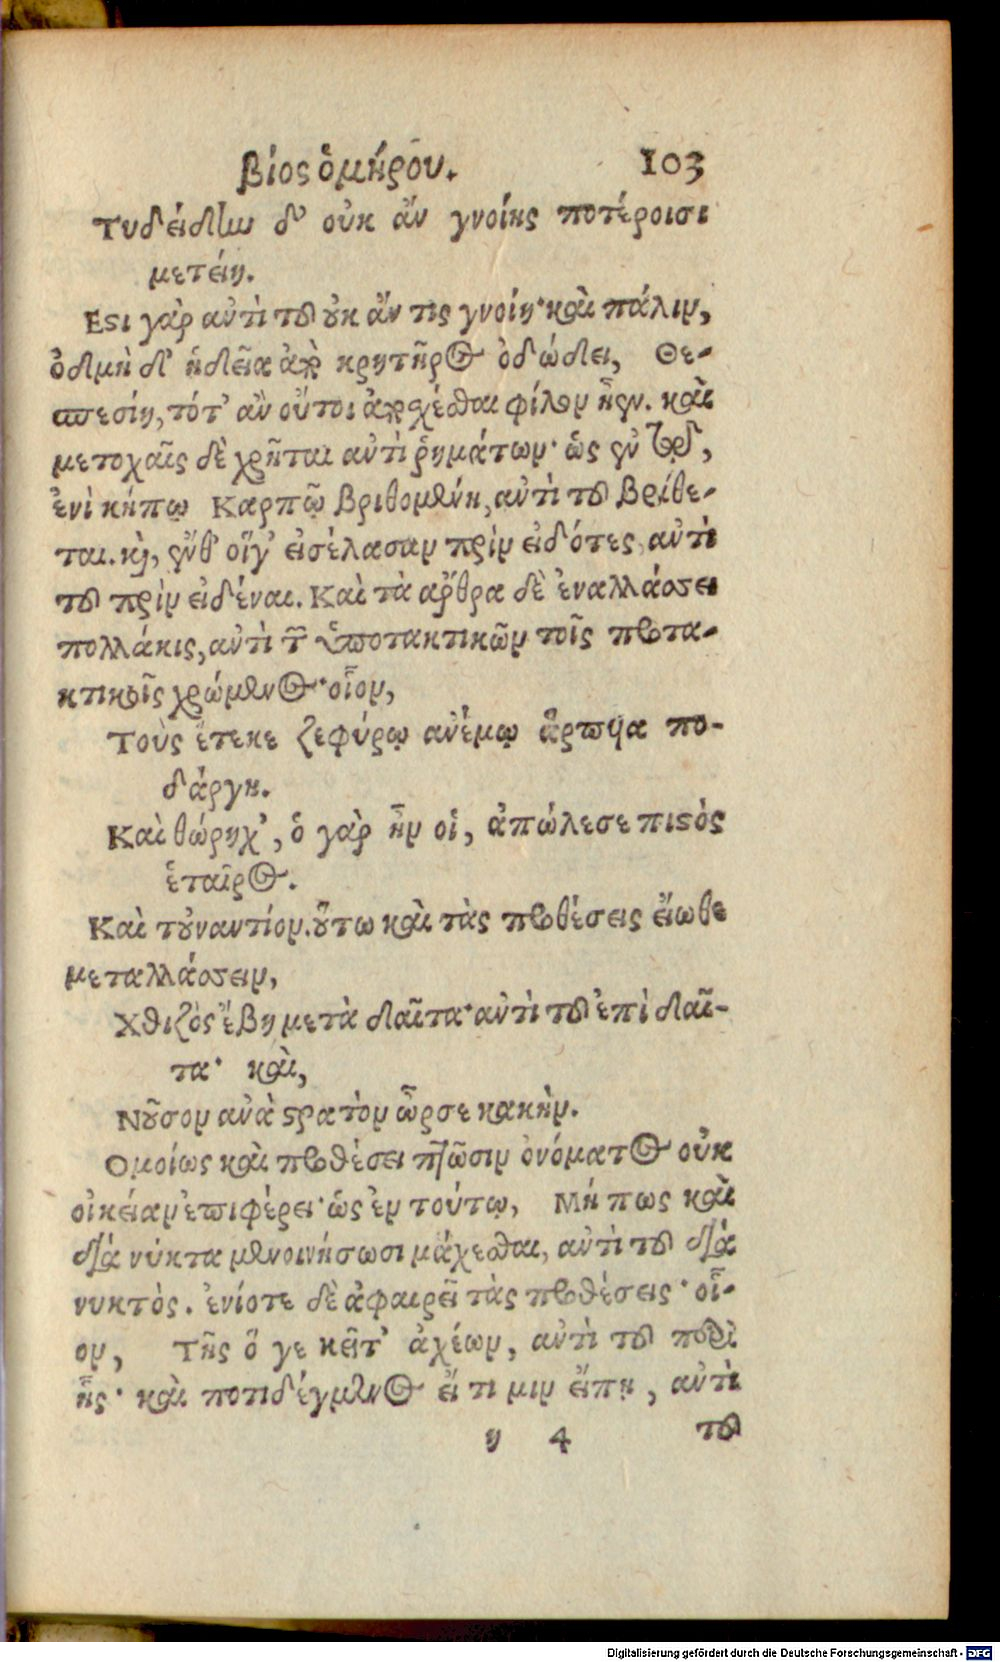 βίος ὁμήρου. 103
Τυδείδην δ' οὐκ ἂν γνοίης ποτέροισι
μετείη.
Εστι γὰρ αὐτὶ τοῦ οὐκ ἄν τις γνοίη· καὶ πάλιν,
ὀδμὴ δ' ἡδεῖα ἀπὸ κρητῆρος ὀδώδει, Θε-
σπεσίη, τότ' ἂν οὔτοι ἀποσχέσθαι φίλον ἦεν. καὶ
μετοχαῖς δὲ χρῆται αὐτὶ ῥημάτων· ὡς ἐν
ἐνὶ κήπῳ Καρπῷ βριθομένη, αὐτὶ τοῦ βρίθε-
ται. καὶ, ἔνθ' οἵγ' εἰσέλασαν πρὶν εἰδότες, αὐτὶ
τοῦ πρὶν εἰδέναι. Καὶ τὰ ἄρθρα δὲ ἐναλλάσσει
πολλάκις, αὐτὶ τῶν ὑποτακτικῶν τοῖς προτα-
κτικοῖς χρώμενος· οἷον,
Τοὺς ἔτεκε ζεφύρῳ ανέμῳ ἅρπυια πο-
δάργη.
Καὶ θώρηχ', ὁ γὰρ ἦν οἱ, ἀπώλεσε πιστὸς
ἑταῖρος.
Καὶ τοὐναντίον. οὕτω καὶ τὰς προθέσεις εἴωθε
μεταλλάσσειν,
Χθιζὸς ἔβη μετὰ δαῖτα· αὐτὶ τοῦ ἐπὶ δαῖ-
τα· καὶ,
Νοῦσον ανὰ στρατὸν ὦρσε κακὴν.
Ομοίως καὶ προθέσει πτῶσιν ὀνόματος οὐκ
οἰκείαν ἐπιφέρει· ὡς ἐν τούτῳ, Μή πως καὶ
διὰ νύκτα μενοινήσωσι μάχεσθαι, αὐτὶ τοῦ διὰ
νυκτὸς. ἐνίοτε δὲ ἀφαιρεῖ τὰς προθέσεις· οἷ-
ον, Τῆς ὅ γε κεῖτ' ἀχέων, αὐτὶ τοῦ περὶ
ἧς· καὶ ποτιδέγμενος εἴ τι μιν εἴπῃ, αὐτὶ
η 4 τοῦ
Digitalisierung gefördert durch die Deutsche Forschungsgemeinschaft - DFG